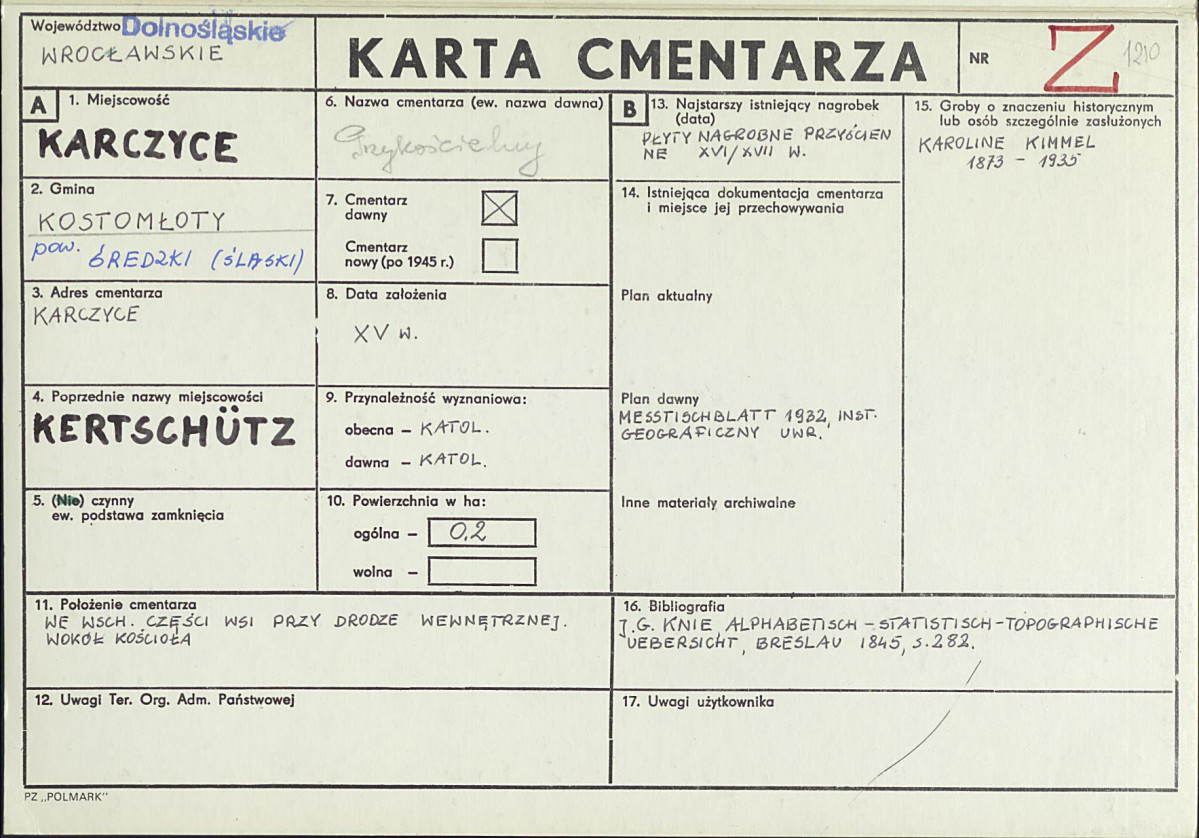 Województwo Dolnośląskie
WROCŁAWSKIE
KARTA CMENTARZA
NR
Z 1210
A 1. Miejscowość
KARCZYCE
2. Gmina
KOSTOMŁOTY
pow. ŚREDZKI (ŚLĄSKI)
3. Adres cmentarza
KARCZYCE
4. Poprzednie nazwy miejscowości
KERTSCHÜTZ
5. (Nie) czynny
ew. podstawa zamknięcia
6. Nazwa cmentarza (ew. nazwa dawna)
Przykościelny
7. Cmentarz
dawny
Cmentarz
nowy (po 1945 r.)
8. Data założenia
XV w.
9. Przynależność wyznaniowa:
obecna – KATOL.
dawna – KATOL.
10. Powierzchnia w ha:
ogólna – 0.2
wolna –
11. Położenie cmentarza
WE WSCH. CZĘŚCI WSI PRZY DRODZE WEWNĘTRZNEJ.
WOKÓŁ KOŚCIOŁA
12. Uwagi Ter. Org. Adm. Państwowej
B 13. Najstarszy istniejący nagrobek
(data)
PŁYTY NAGROBNE PRZYŚCIEN
NE XVI/XVII W.
14. Istniejąca dokumentacja cmentarza
i miejsce jej przechowywania
Plan aktualny
Plan dawny
MESSTISCHBLATT 1932, INST.
GEOGRAFICZNY UWR.
Inne materiały archiwalne
15. Groby o znaczeniu historycznym
lub osób szczególnie zasłużonych
KAROLINE KIMMEL
1873 – 1935
16. Bibliografia
J.G. KNIE ALPHABETISCH – STATISTISCH – TOPOGRAPHISCHE
UEBERSICHT, BRESLAU 1845, s. 282.
17. Uwagi użytkownika
PZ „POLMARK"